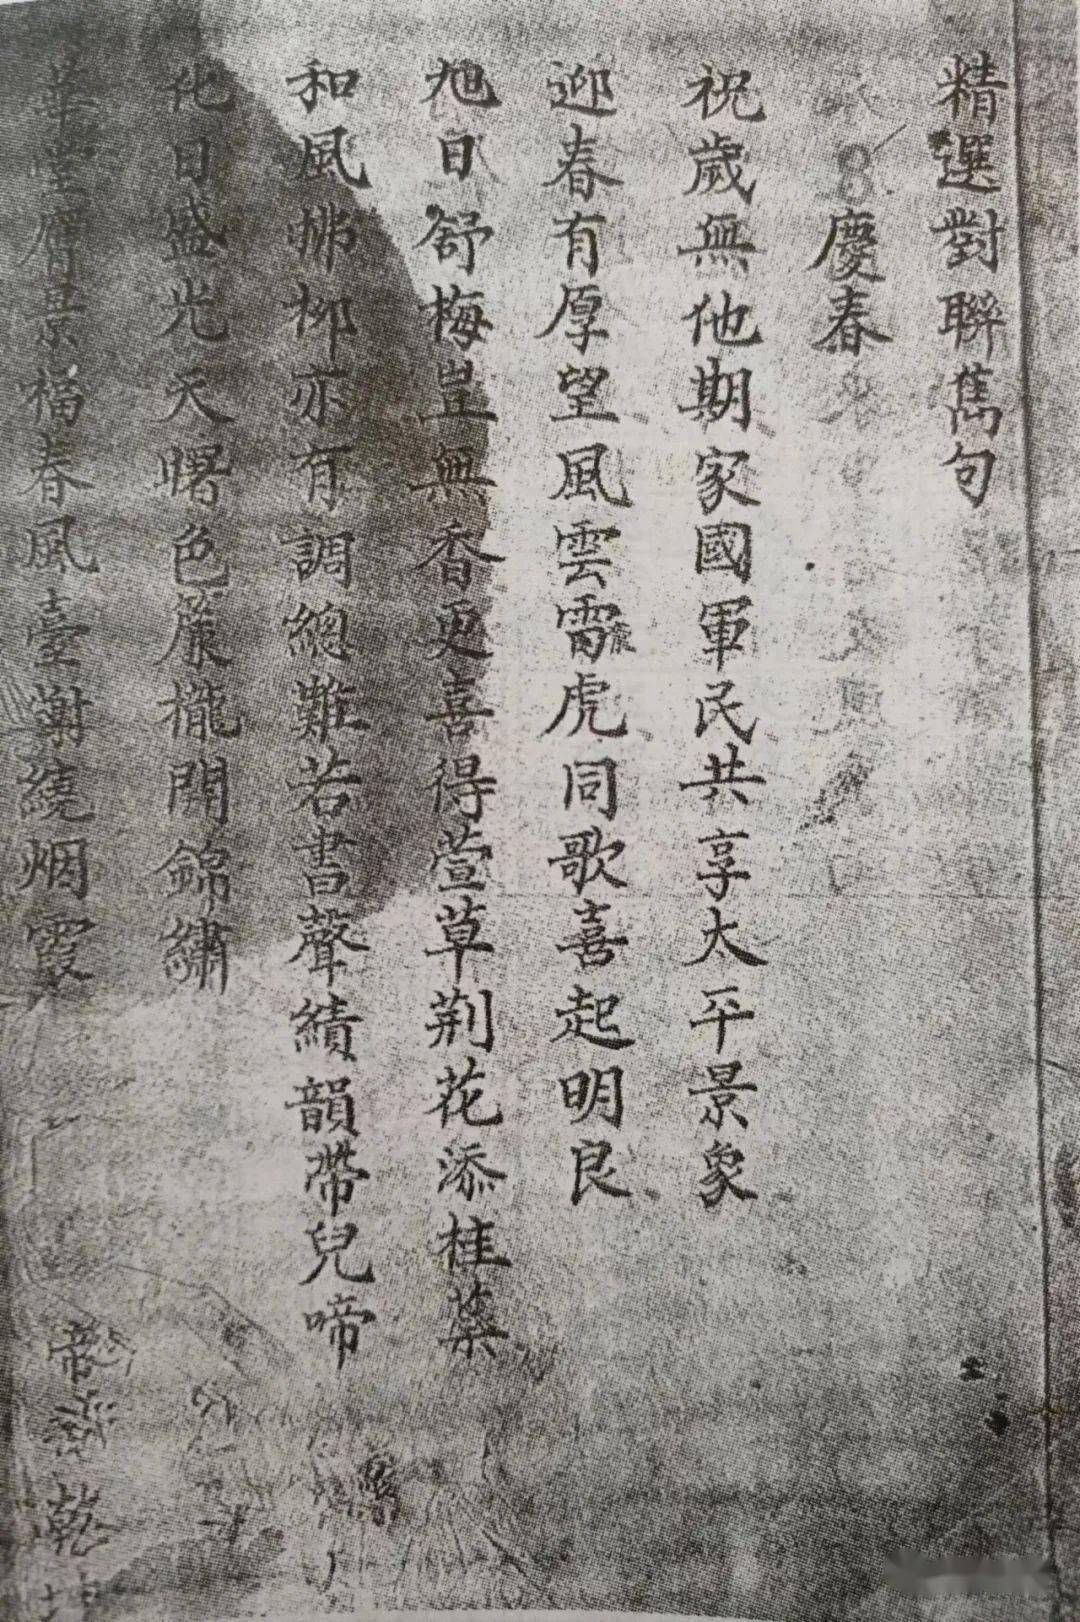 精選對聯雋句
慶春
祝歲無他期家國軍民共享太平景象
迎春有厚望風雲雷虎同歌喜起明良
旭日舒梅豈無香更喜得萱草荊花添桂蘂
和風拂柳亦有調總難若書聲績韻帶兒啼
化日盛光天曙色簾櫳開錦繡
華堂膺景福春風臺榭繞烟霞